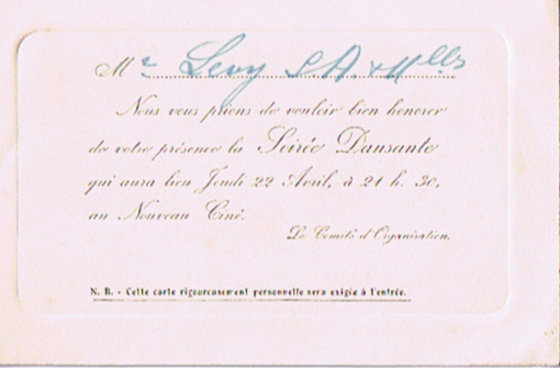 Mr Levy S.A. & Mlles
Nous vous prions de vouloir bien honorer
de votre présence la Soirée Dansante
qui aura lieu Jeudi 22 Avril, à 21 h. 30,
au Nouveau Ciné.
Le Comité d'Organisation.
N. B. - Cette carte rigoureusement personnelle sera exigée à l'entrée.